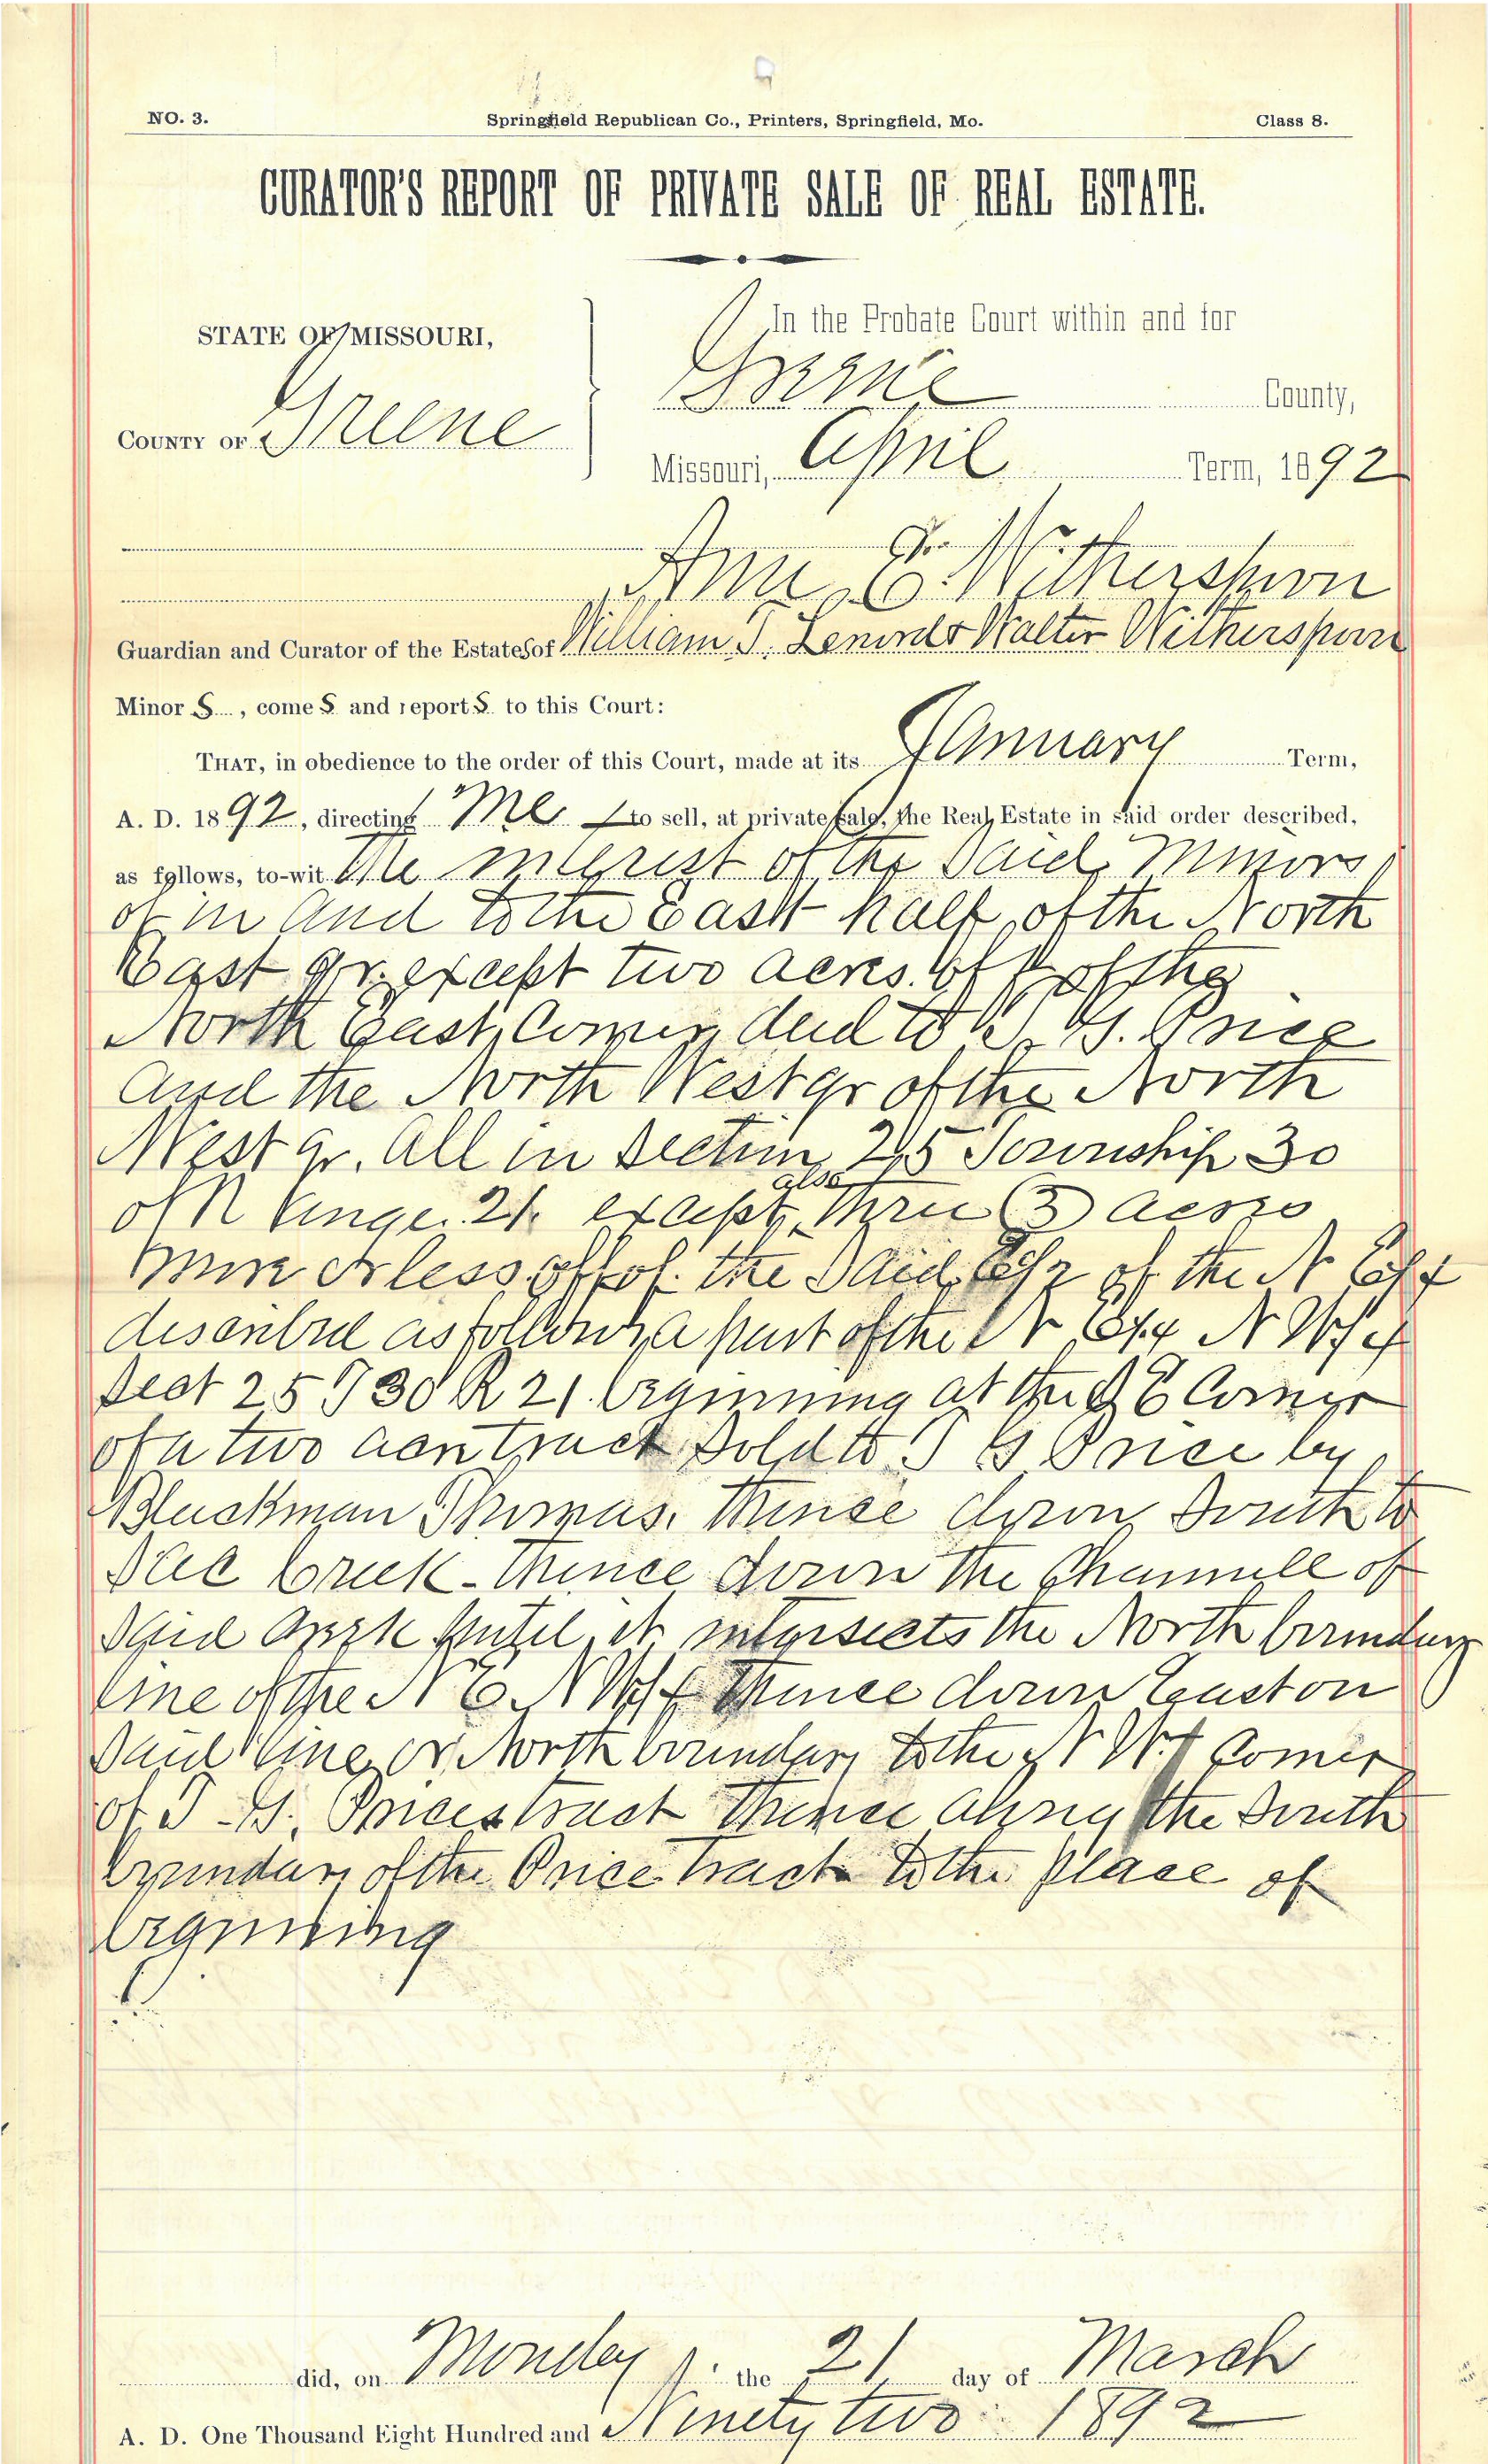 NO. 3. Springfield Republican Co., Printers, Springfield, Mo. Class 8.
CURATOR'S REPORT OF PRIVATE SALE OF REAL ESTATE.
STATE OF MISSOURI,
COUNTY OF Greene
In the Probate Court within and for
Greene County,
Missouri, April Term, 1892
Ann E. Witherspoon
Guardian and Curator of the Estates of William T. Walter Witherspoon
Minor s, comes and reports to this Court:
THAT, in obedience to the order of this Court, made at its January Term,
A. D. 1892, directing Me to sell, at private sale, the Real Estate in said order described,
as follows, to-wit The interest of the Said Minors
of in and to the East half of the North
East qr. except two acres off of the
North East Corner deed to T. G. Price
and the North West qr of the North
West qr. all in Section 25 Township 30
of Range 21. except also three (3) acres
more or less off of the Said E 1/2 of the N E 1/4
described as follows, a part of the N E 1/4 N W 1/4
Sect 25 T 30 R 21. beginning at the S E Corner
of a two acre tract Sold to T G Price by
Blackman Thomas. Thence down South to
Sac Creek - thence down the Channell of
Said creek until it intersects the North boundary
line of the N E. N W 1/4 Thence down East on
Said line or North boundary to the N W. Corner
of T. G. Prices tract Thence along the South
boundary of the Price tract to the place of
beginning
did, on Monday the 21 day of March
A. D. One Thousand Eight Hundred and Ninety two 1892